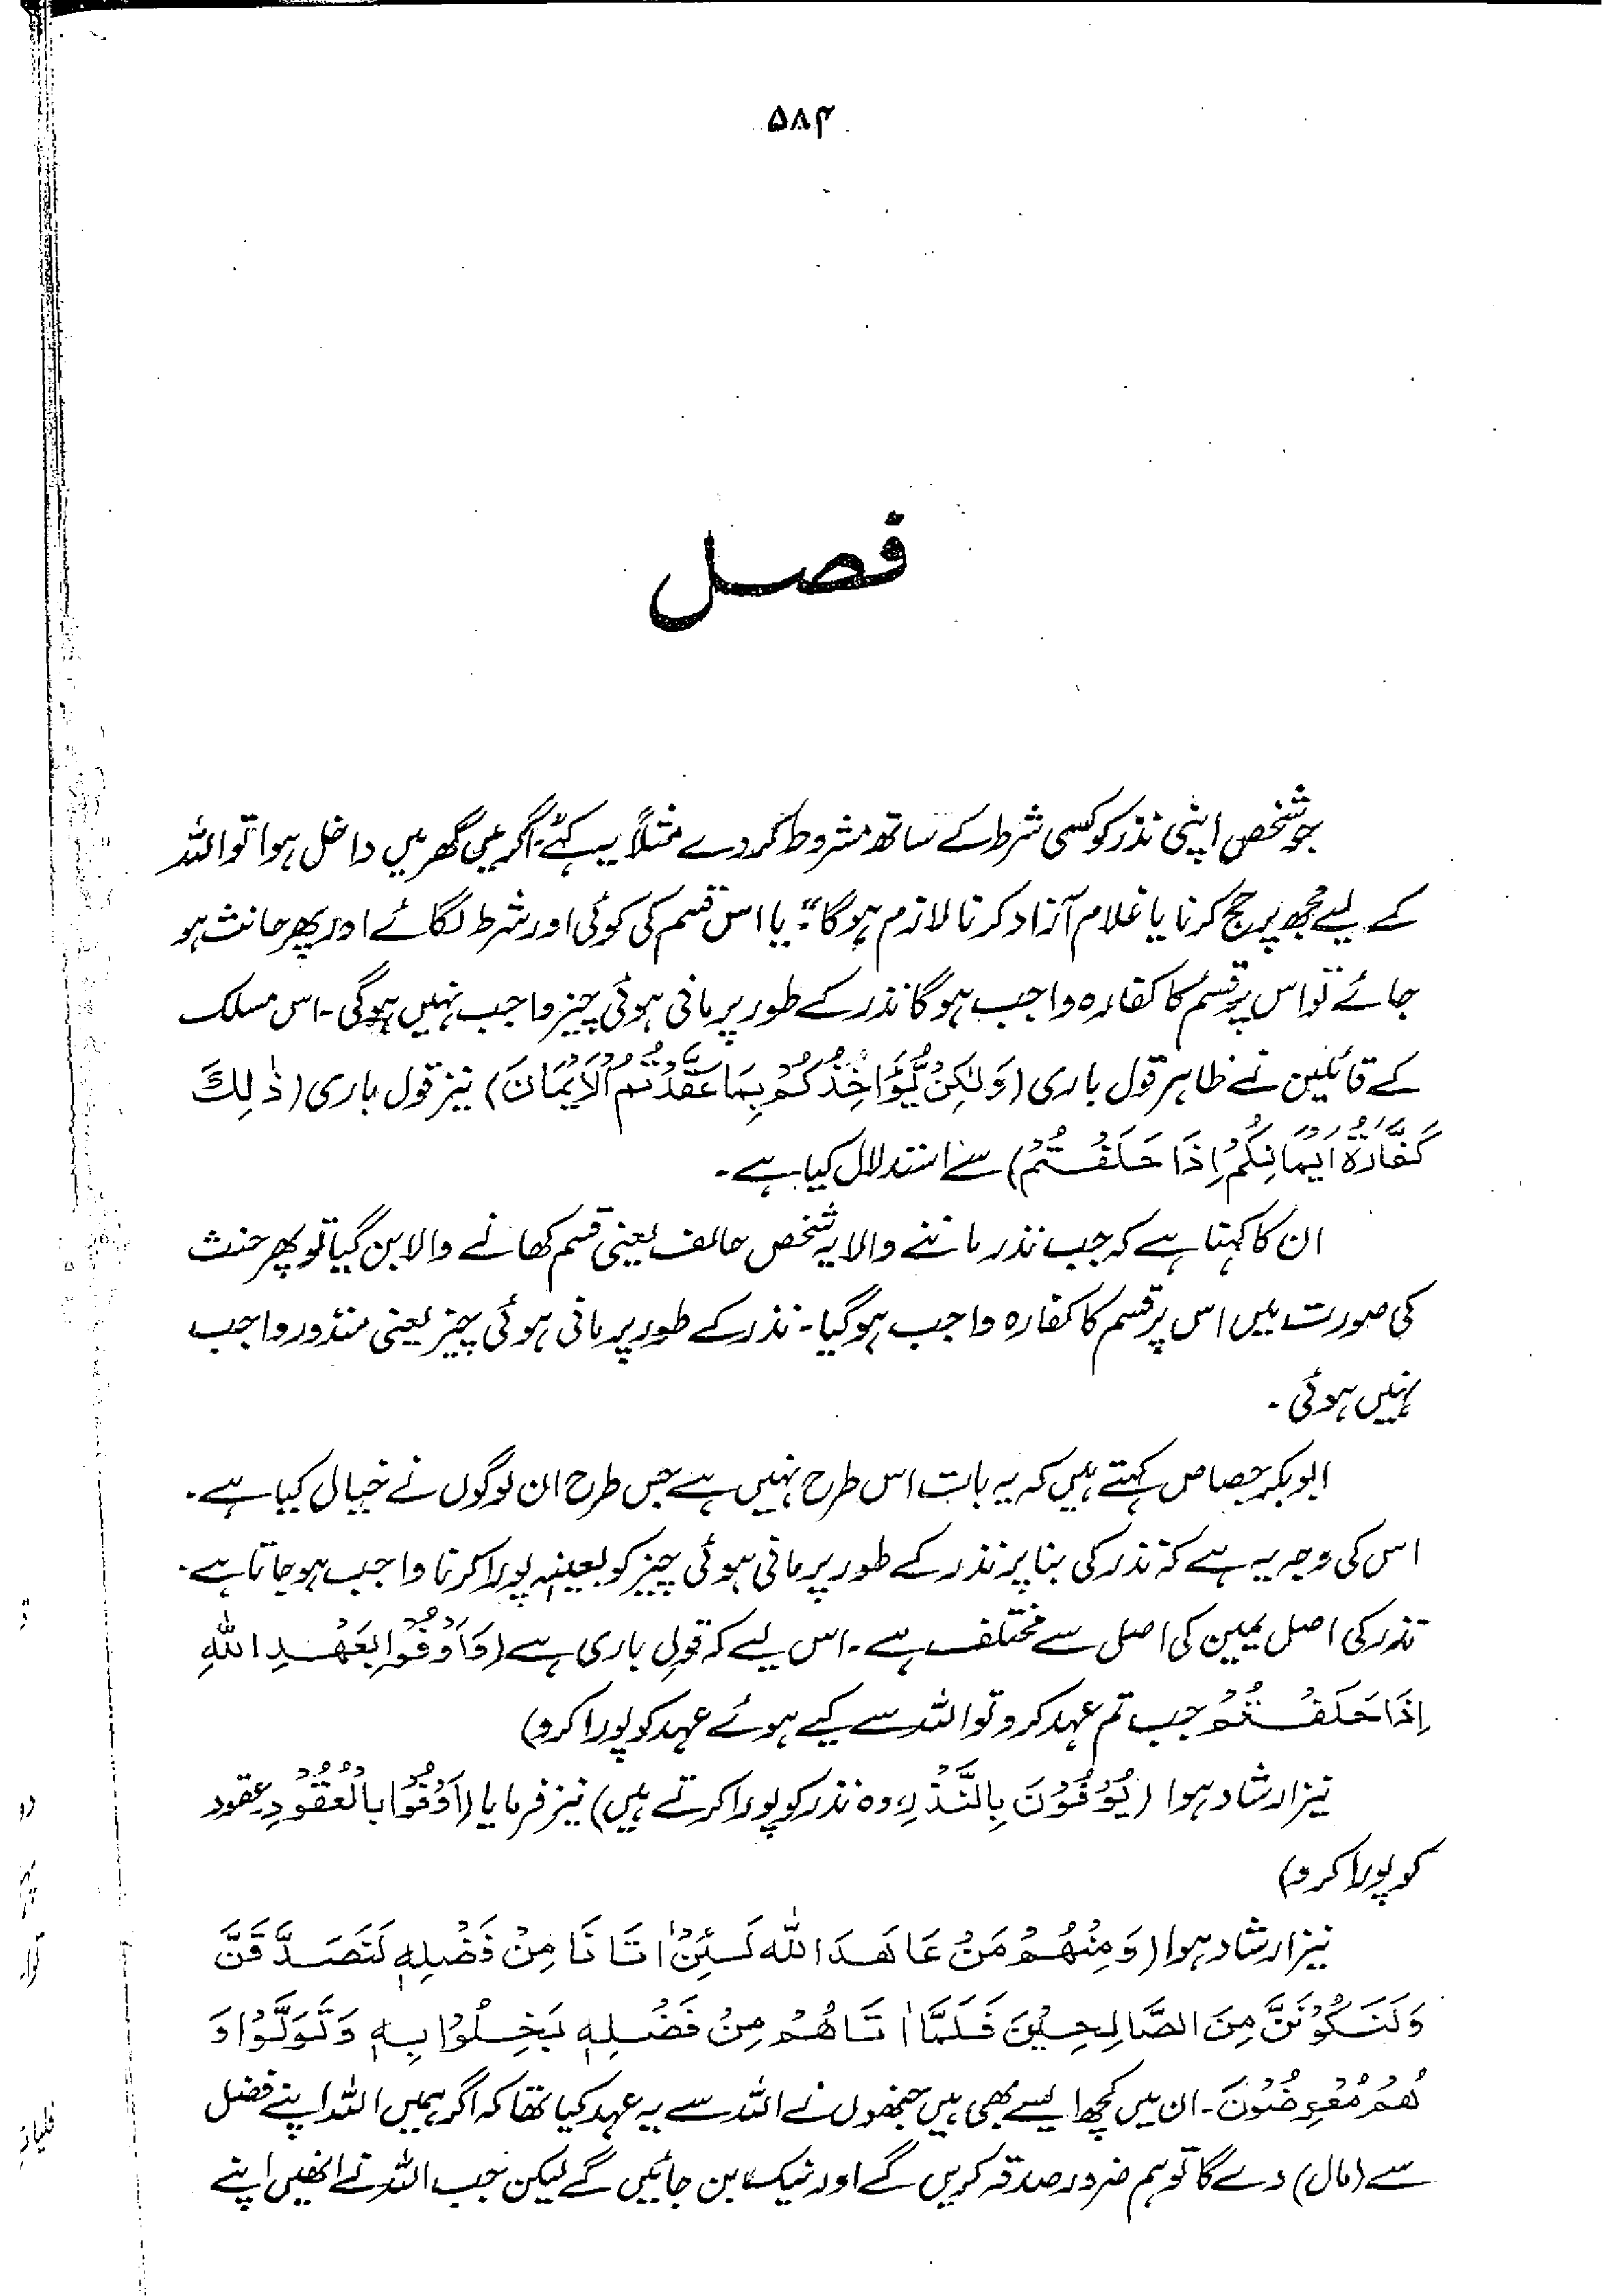 ۵۸۴
فصل
جو شخص اپنی نذر کو کسی شرط کے ساتھ مشروط کر دے مثلاً یہ کہے "اگر میں گھر میں داخل ہوا تو اللہ
کے لیے مجھ پر حج کرنا یا غلام آزاد کرنا لازم ہوگا" یا اس قسم کی کوئی اور شرط لگائے اور پھر حانث ہو
جائے تو اس پر قسم کا کفارہ واجب ہوگا نذر کے طور پر مانی ہوئی چیز واجب نہیں ہوگی۔ اس مسلک
کے قائلین نے ظاہر قول باری (وَلٰكِنْ يُّؤَاخِذُكُمْ بِمَا عَقَّدْتُمُ الْاَيْمَانَ) نیز قول باری (ذٰلِكَ
كَفَّارَةُ اَيْمَانِكُمْ اِذَا حَلَفْتُمْ) سے استدلال کیا ہے۔
ان کا کہنا ہے کہ جب نذر ماننے والا یہ شخص حالف یعنی قسم کھانے والا بن گیا تو پھر حنث
کی صورت میں اس پر قسم کا کفارہ واجب ہوگیا۔ نذر کے طور پر مانی ہوئی چیز یعنی منذور واجب
نہیں ہوئی۔
ابوبکر جصاص کہتے ہیں کہ یہ بات اس طرح نہیں ہے جس طرح ان لوگوں نے خیال کیا ہے۔
اس کی وجہ یہ ہے کہ نذر کی بنا پر نذر کے طور پر مانی ہوئی چیز کو بعینہٖ پورا کرنا واجب ہو جاتا ہے۔
نذر کی اصل یمین کی اصل سے مختلف ہے۔ اس لیے کہ قولِ باری ہے (وَاَوْفُوْا بِعَهْدِ اللهِ
اِذَا حَلَفْتُمْ جب تم عہد کرو تو اللہ سے کیے ہوئے عہد کو پورا کرو)
نیز ارشاد ہوا (يُوْفُوْنَ بِالنَّذْرِ، وہ نذر کو پورا کرتے ہیں) نیز فرمایا (اَوْفُوْا بِالْعُقُوْدِ عقود
کو پورا کرو)
نیز ارشاد ہوا (وَمِنْهُمْ مَنْ عَاهَدَ اللّٰهَ لَئِنْ اٰتَانَا مِنْ فَضْلِهٖ لَنَصَدَّقَنَّ
وَلَنَكُوْنَنَّ مِنَ الصَّالِحِيْنَ فَلَمَّا اٰتَاهُمْ مِنْ فَضْلِهٖ بَخِلُوْا بِهٖ وَتَوَلَّوْا وَ
هُمْ مُعْرِضُوْنَ۔ ان میں کچھ ایسے بھی ہیں جنھوں نے اللہ سے یہ عہد کیا تھا کہ اگر ہمیں اللہ اپنے فضل
سے (مال) دے گا تو ہم ضرور صدقہ کریں گے اور نیک بن جائیں گے لیکن جب اللہ نے انھیں اپنے